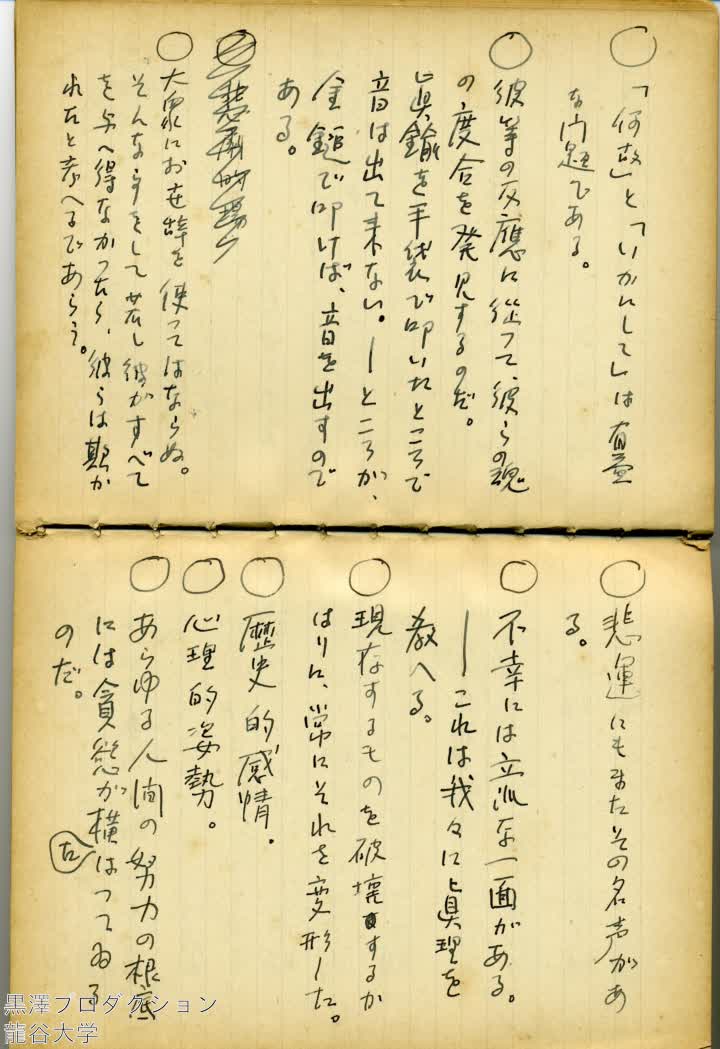 ○「何故」と「いかにして」は有益
な问題である。
○彼等の反應に從つて、彼らの魂
の度合を発見するのだ。
眞鍮を手袋で叩いたところで
音は出て来ない。―ところが、
金鎚で叩けば、音を出すので
ある。
○悲劇的場
○大衆にお世辞を使つてはならぬ。
そんな事をして若し彼がすべて
を与へ得なかつたら、彼らは欺か
れたと考へるであらう。
○悲運にもまたその名声があ
る。
○不幸には立派な一面がある。
―これは我々に眞理を
教へる。
○現存するものを破壊するか
はりに、常にそれを変形した。
○歴史的感情.
○心理的姿勢。
○あらゆる人间の努力の根底
には貪慾が横はつてゐる
のだ。
た
黒澤プロダクション
龍谷大学